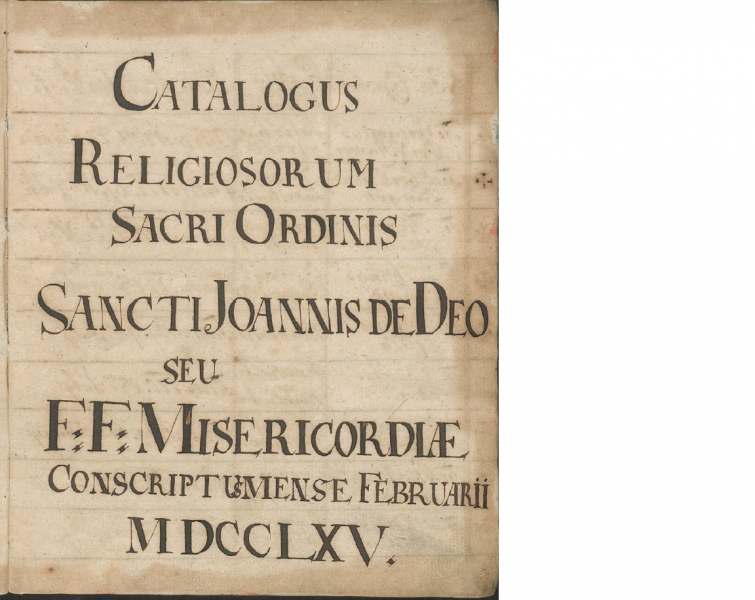 CATALOGUS
RELIGIOSORUM
SACRI ORDINIS
SANCTI JOANNIS DE DEO
SEU
F: F: MISERICORDIÆ
CONSCRIPTUS MENSE FEBRUARII
MDCCLXV.